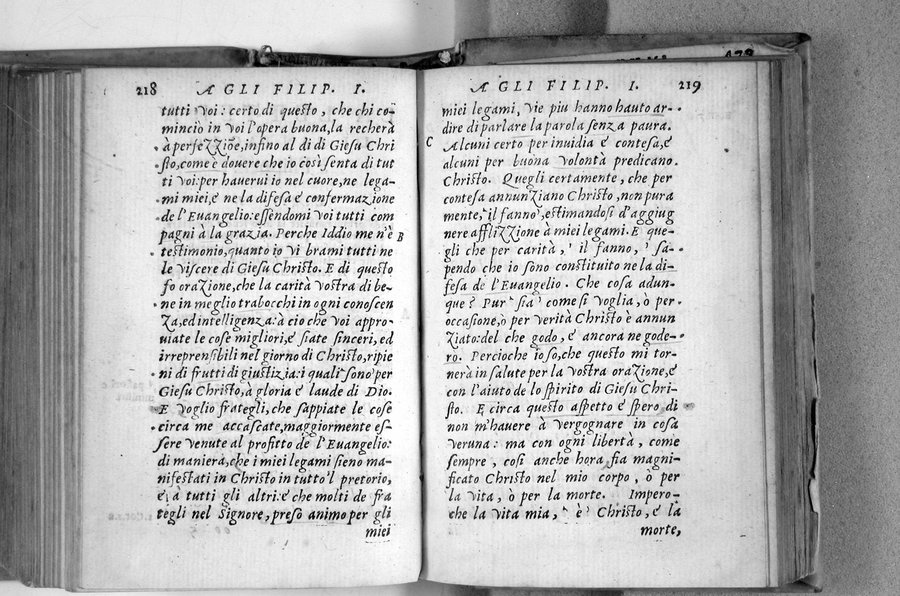 218 A GLI FILIP. I.
tutti voi: certo di questo, che chi cō
minciò in voi l'opera buona, la recherà
a perfezzióe, infino al di di Giesu Chri
sto, come è douere che io così senta di tut
ti voi: per hauerui io nel cuore, ne lega-
mi miei, e ne la difesa e confermazione
de l'Euangelio: essendomi voi tutti com
pagni à la grazia. Perche Iddio me n'è
B
testimonio, quanto io vi brami tutti ne
le viscere di Giesu Christo. E di questo
fo orazione, che la carità vostra di be-
ne in meglio trabocchi in ogni conoscen
za, ed intelligenza: à cio che voi appro-
uiate le cose migliori, e siate sinceri, ed
irreprensibili nel giorno di Christo, ripie
ni di frutti di giustizia: i quali sono per
Giesu Christo, à gloria e laude di Dio.
E voglio frategli, che sappiate le cose
circa me accascate, maggiormente es-
sere venute al profitto de l'Euangelio:
di maniera, che i miei legami sieno ma-
nifestati in Christo in tutto'l pretorio,
e à tutti gli altri: e che molti de fra
tegli nel Signore, preso animo per gli
miei
A GLI FILIP. I. 219
miei legami, vie piu hanno hauto ar-
dire di parlare la parola senza paura.
C
Alcuni certo per inuidia e contesa, e
alcuni per buona volontà predicano.
Christo. Quegli certamente, che per
contesa annunziano Christo, non pura
mente, il fanno, estimandosi d'aggiug
nere afflizzione à miei legami. E que-
gli che per carità, il fanno, sa-
pendo che io sono constituito ne la di-
fesa de l'Euangelio. Che cosa adun-
que? Pur sia come si voglia, ò per
occasione, ò per verità Christo è annun
ziato: del che godo, e ancora ne gode-
ro. Percioche io so, che questo mi tor-
nerà in salute per la vostra orazione, e
con l'aiuto de lo spirito di Giesu Chri-
sto. E circa questo aspetto e spero di
non m'hauere à vergognare in cosa
veruna: ma con ogni libertà, come
sempre, così anche hora sia magni-
ficato Christo nel mio corpo, ò per
la vita, ò per la morte. Impero-
che la vita mia, è Christo, e la
morte,